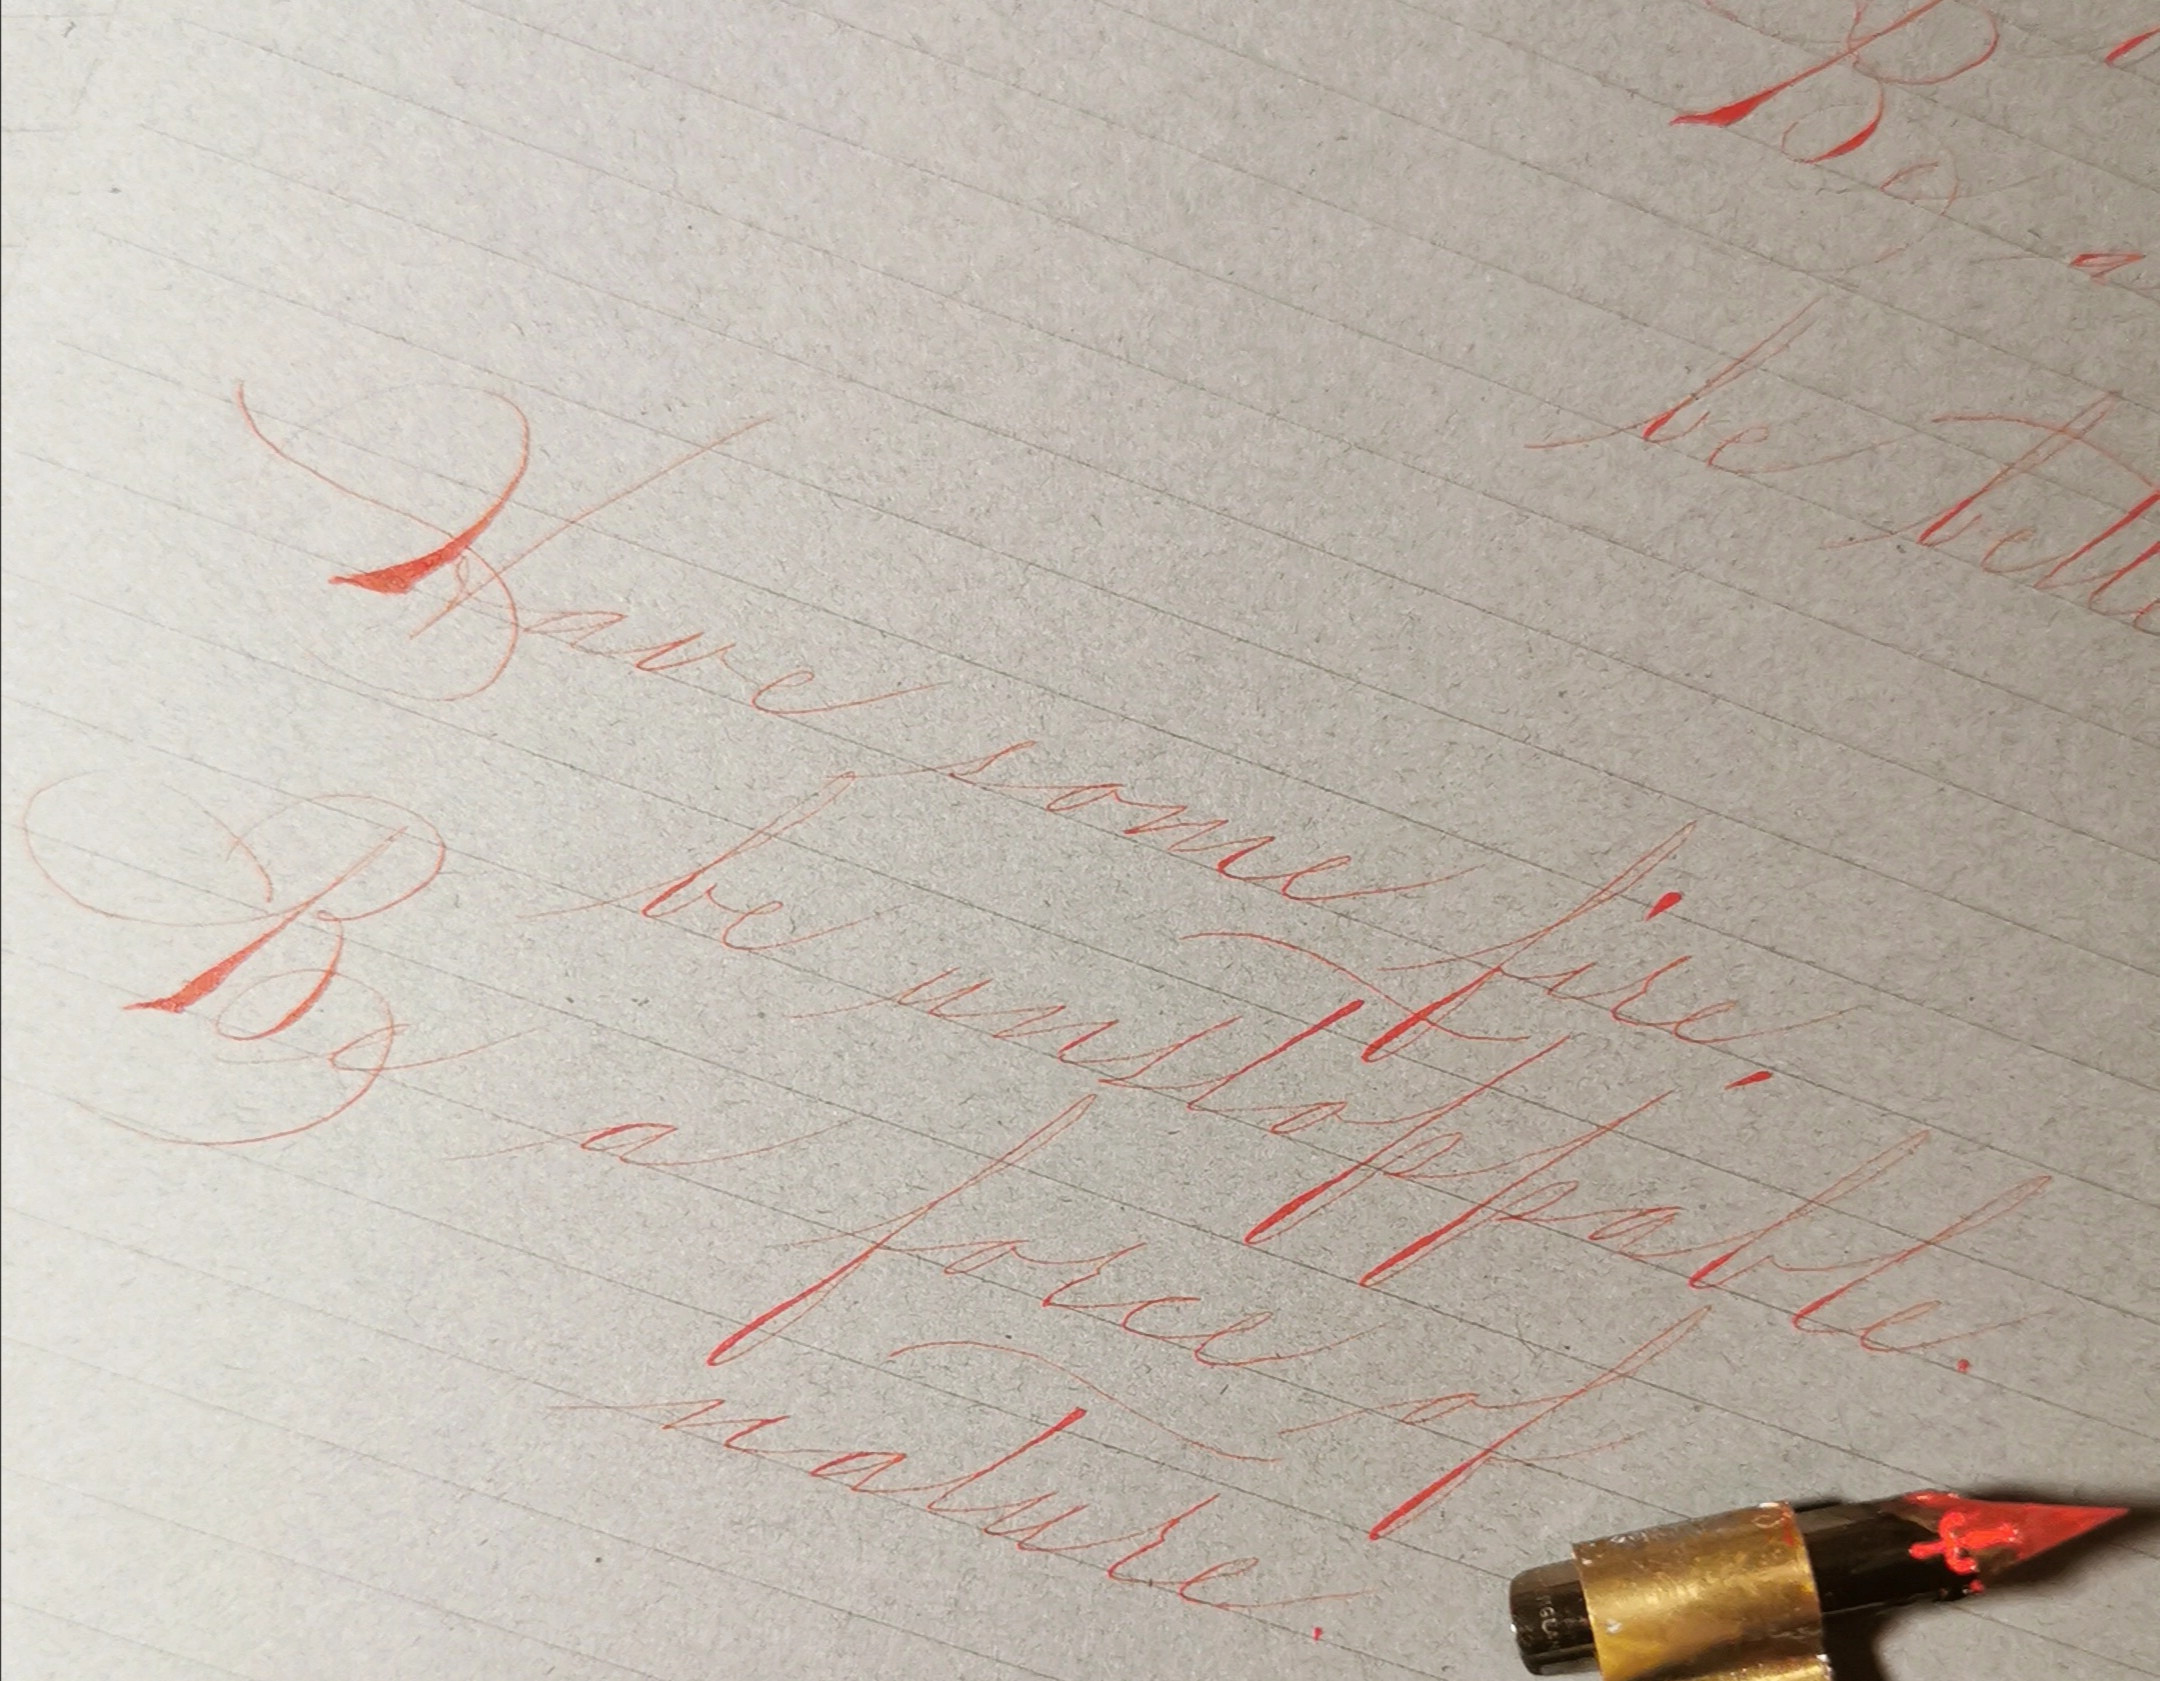 Have some fire.
be unstoppable.
Be a force of
nature.
Be a
be